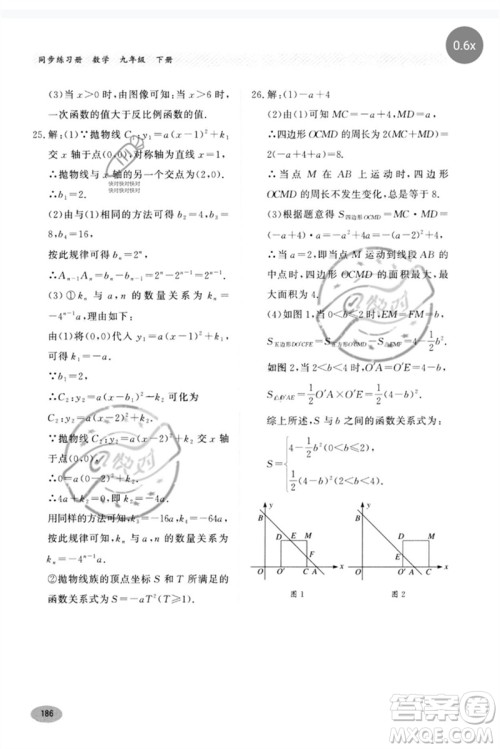 0.6x
同步练习册 数学 九年级 下册
(3)当 x>0 时，由图像可知；当 x>6 时，
一次函数的值大于反比例函数的值.
25.解：(1)∵抛物线 C₁：y₁=a(x-1)²+k₁
交 x 轴于点(0,0)，对称轴为直线 x=1，
∴抛物线与 x 轴的另一个交点为(2,0).
∴b₁=2.
(2)由(1)与相同的方法可得，b₂=4，b₃=
8，b₄=16，
按此规律可得 bₙ=2ⁿ，
∴Aₙ₋₁Aₙ=2ⁿ-2ⁿ⁻¹=2ⁿ⁻¹.
(3)①kₙ 与 a，n 的数量关系为 kₙ=
-4ⁿ⁻¹a，理由如下：
由(1)将(0,0)代入 y₁=a(x-1)²+k₁
可得，k₁=-a.
∵b₁=2，
∴C₂：y₂=a(x-b₁)²+k₂，
即 C₂：y₂=a(x-2)²+k₂.
∵抛物线 C₂：y₂=a(x-2)²+k₂ 交 x 轴
于点(0,0)，
∴4a+k₂=0，
∴k₂=-4a，
用同样的方法可知，k₃=-16a，k₄=
-64a，按此规律可得，kₙ=-4ⁿ⁻¹a.
②抛物线族的顶点坐标 S 和 T 满足的
函数关系式为 S=-aT²(T≥1).
26.解：(1)-a+4
(2)由(1)可知 MC=-a+4，OC=a，
∴四边形 OCMD 的周长为 2(MC+
OC)=2(-a+4+a)=8.
∴当点 M 在 AB 上运动时，四边形
OCMD 的周长不发生变化，总是等于 8.
(3)根据题意得，S四边形OCMD=MC·OC=
(-a+4)·a=-a²+4a=-(a-2)²+4，
∴当 a=2，即当点 M 运动到线段 AB 的
中点时，四边形 OCMD 的面积最大，最
大面积为 4.
(4)如图 1，当 0<b≤2 时，S=4-
S=-1/2 b²+4，
如图 2，当 2<b<4 时，O′A=4-b，∴S=
S△O′AE=1/2 O′A×O′E=1/2(4-b)²，
综上所述，S 与 b 之间的函数关系式为
S={-1/2 b²+4(0<b≤2)
1/2(4-b)²(2<b<4)
y
B
D E M
F
O O′ C A x
图 1
y
B
D M
E
O O′ A C x
图 2
186